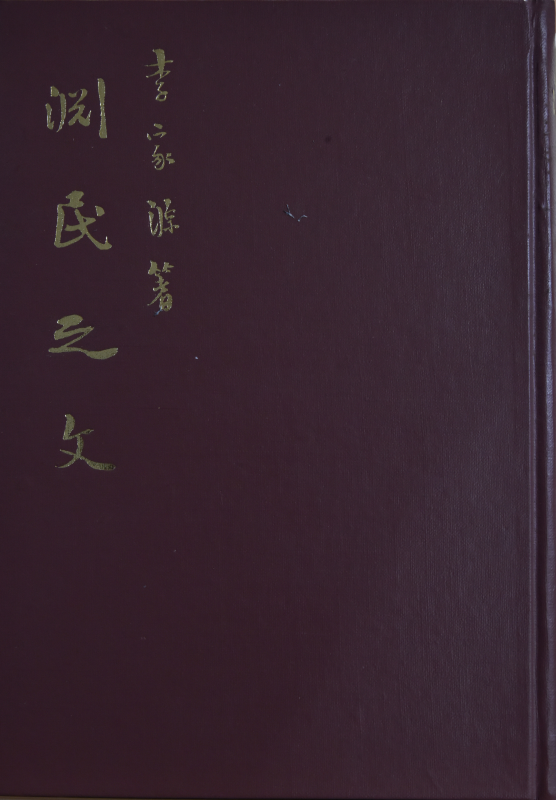 李家源著
淵民之文